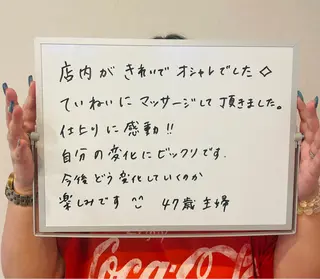 店内がきれいでオシャレでした◇
ていねいにマッサージして頂きました。
仕上りに感動!!
自分の変化にビックリです.
今後どう変化していくのか
楽しみです 47歳主婦
Coca-Cola